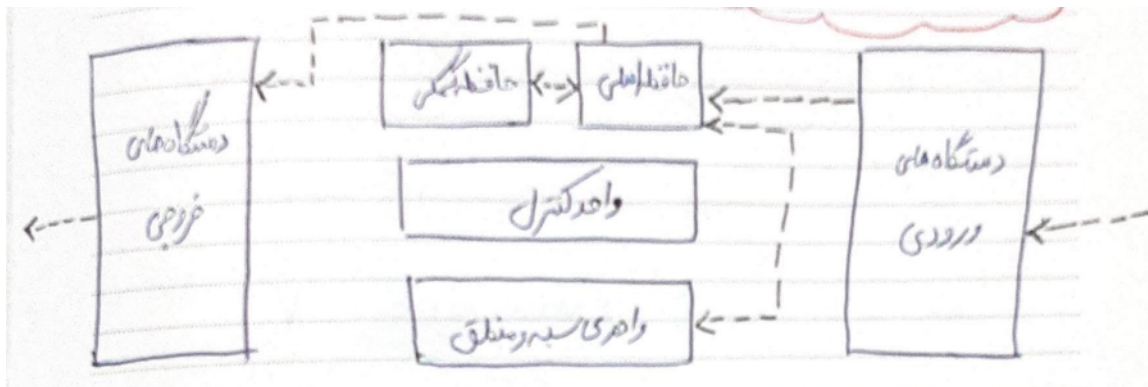 دستگاه‌های
ورودی
حافظه اصلی
حافظه کمکی
واحد کنترل
واحد محاسبه و منطق
دستگاه‌های
خروجی